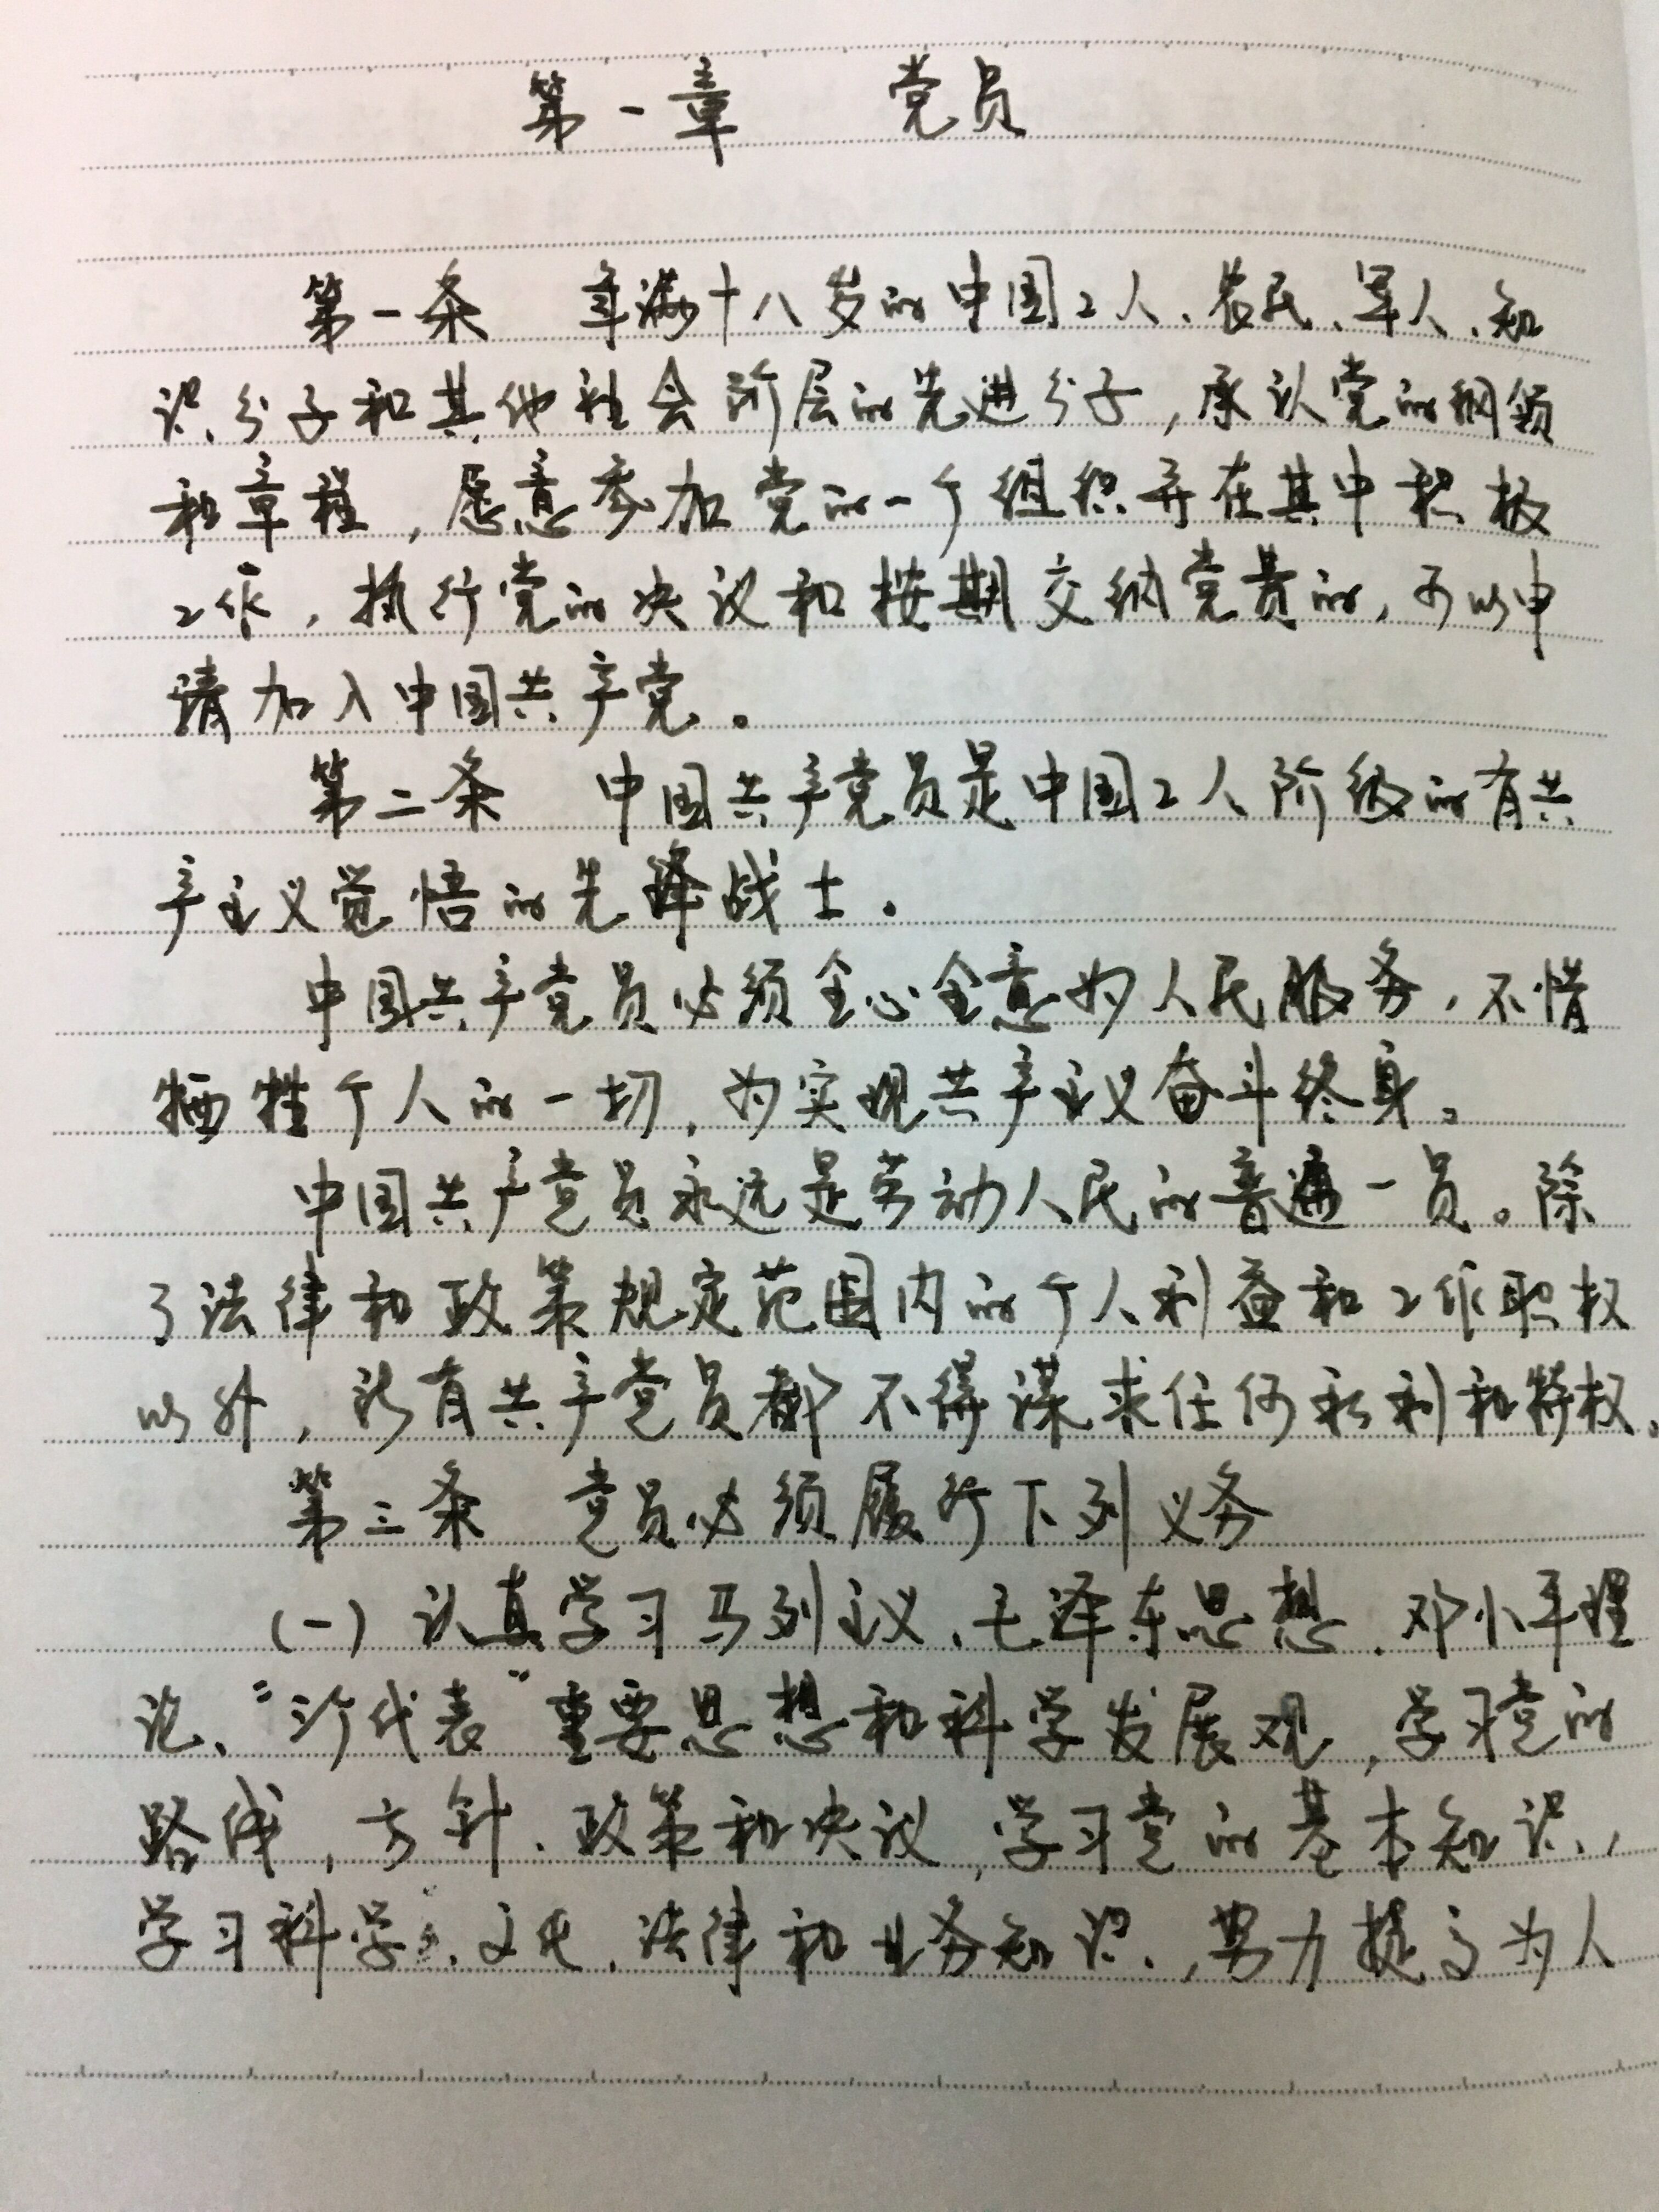 第一章 党员
第一条 年满十八岁的中国工人、农民、军人、知
识分子和其他社会阶层的先进分子,承认党的纲领
和章程,愿意参加党的一个组织并在其中积极
工作,执行党的决议和按期交纳党费的,可以申
请加入中国共产党。
第二条 中国共产党员是中国工人阶级的有共
产主义觉悟的先锋战士.
中国共产党员必须全心全意为人民服务,不惜
牺牲个人的一切,为实现共产主义奋斗终身。
中国共产党员永远是劳动人民的普通一员。除
了法律和政策规定范围内的个人利益和工作职权
以外,所有共产党员都不得谋求任何私利和特权。
第三条 党员必须履行下列义务
(一)认真学习马列主义、毛泽东思想、邓小平理
论、“三个代表”重要思想和科学发展观,学习党的
路线,方针、政策和决议,学习党的基本知识,
学习科学、文化、法律和业务知识,努力提高为人